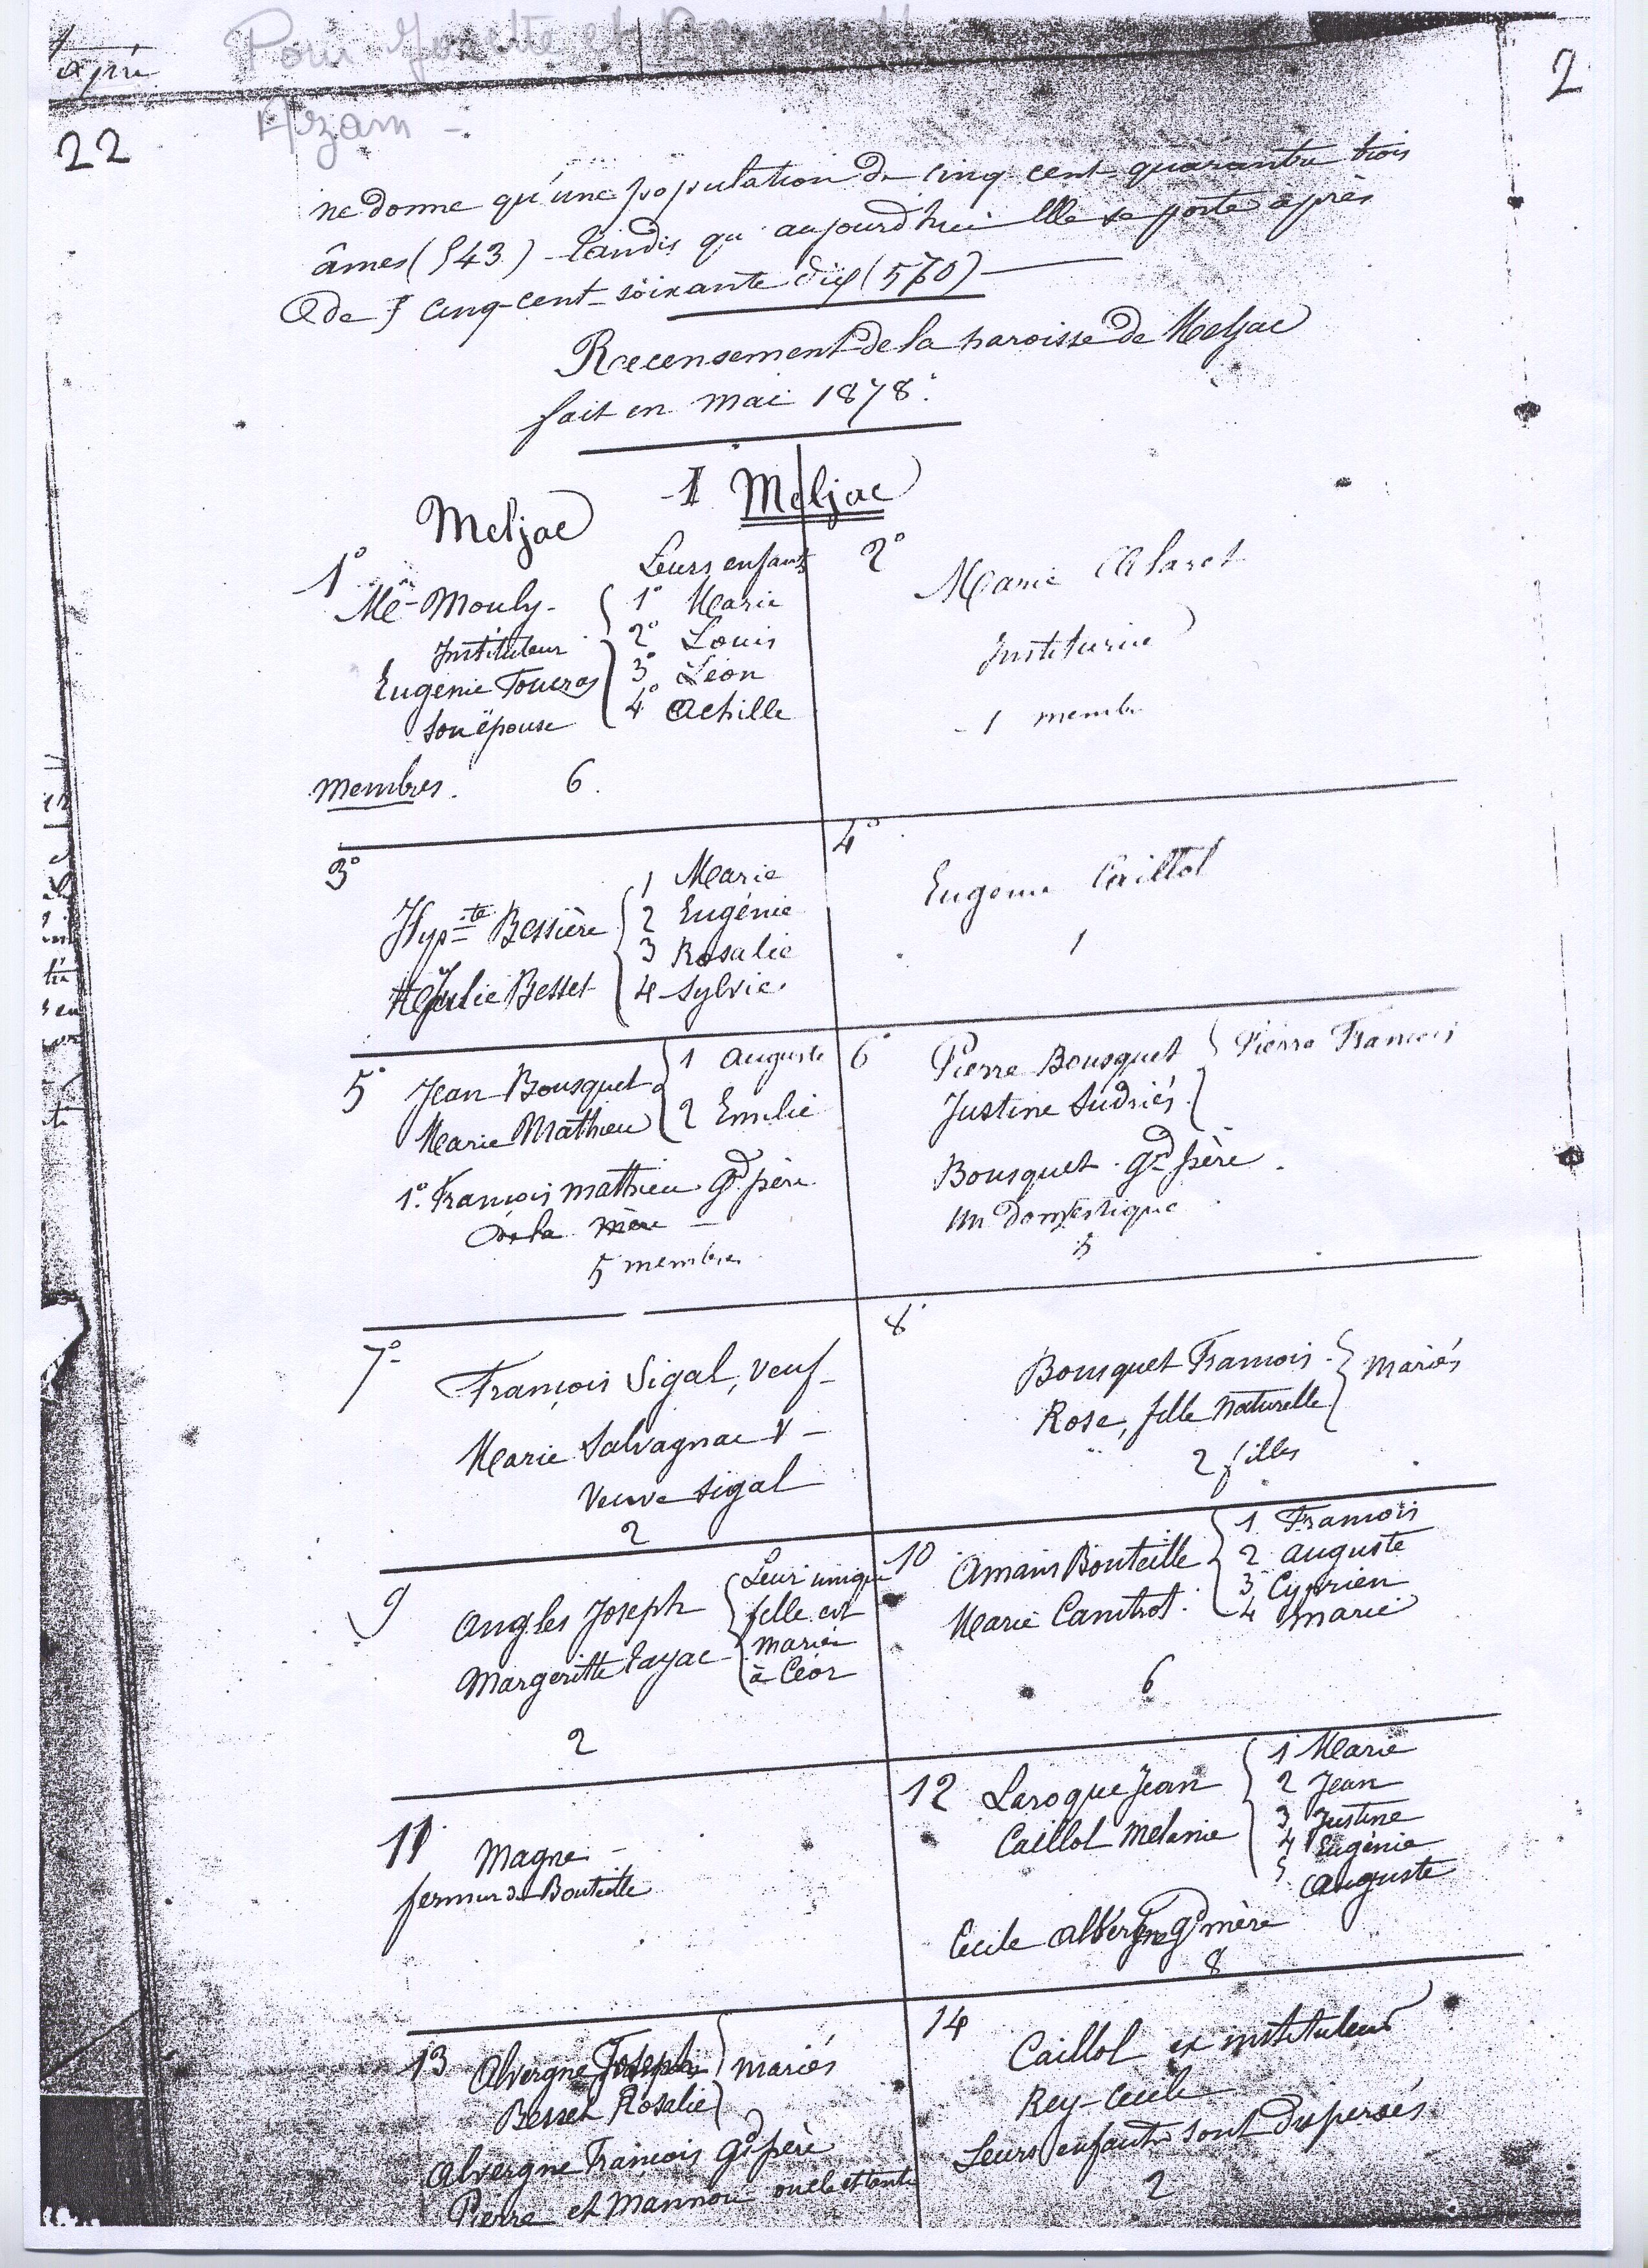 Pour Josette et
Azam -
22
2
ne donne qu'une population de cinq cent quarante trois
âmes (543) - tandis qu'aujourd'hui elle se porte à près
de cinq-cent-soixante dix (570)
Recensement de la paroisse de Meljac
fait en mai 1878.
-1 Meljac
Meljac
1°
Mouly - Instituteur
Eugenie
son épouse
Leurs enfants
1° Marie
2° Louis
3° Léon
4° Achille
membres. 6.
2°
Marie
Institurice
- 1 membre
3°
Hypte Bessière
Julie Besset
1 Marie
2 Eugénie
3 Rosalie
4 Sylvie.
4°
Eugenie Caillol
1
5° Jean Bousquet
Marie Mathieu
1 Auguste
2 Emilie
1° François Mathieu gd père
de la mère -
5 membres
6° Pierre Bousquet
Justine Sudriés
Pierre François
Bousquet gd père.
un domestique
5
7°
François Sigal, veuf -
Marie Salvagnac V -
Veuve Sigal
2
8°
Bousquet Francois
Rose, fille naturelle
mariés
2 filles
9
Angles Joseph
Margeritte Cayac
Leur unique
fille est
mariée
à Céor
2
10
Amans Bouteille
Marie
1 Francois
2 Auguste
3 Cyprien
4 Marie
6
11
Magne -
fermier de Bouteille
12 Laroque Jean
Caillol Melanie
1 Marie
2 Jean
3 Justine
4 Eugénie
5 Auguste
Cecile Alvergne gd mère
8
13 Alvergne Joseph
Besset Rosalie
mariés
Alvergne Francois gd père
Pierre et Mannou oncle et tante
14
Caillol ex instituteur
Rey - Cecile
Leurs enfants sont dispersés
2